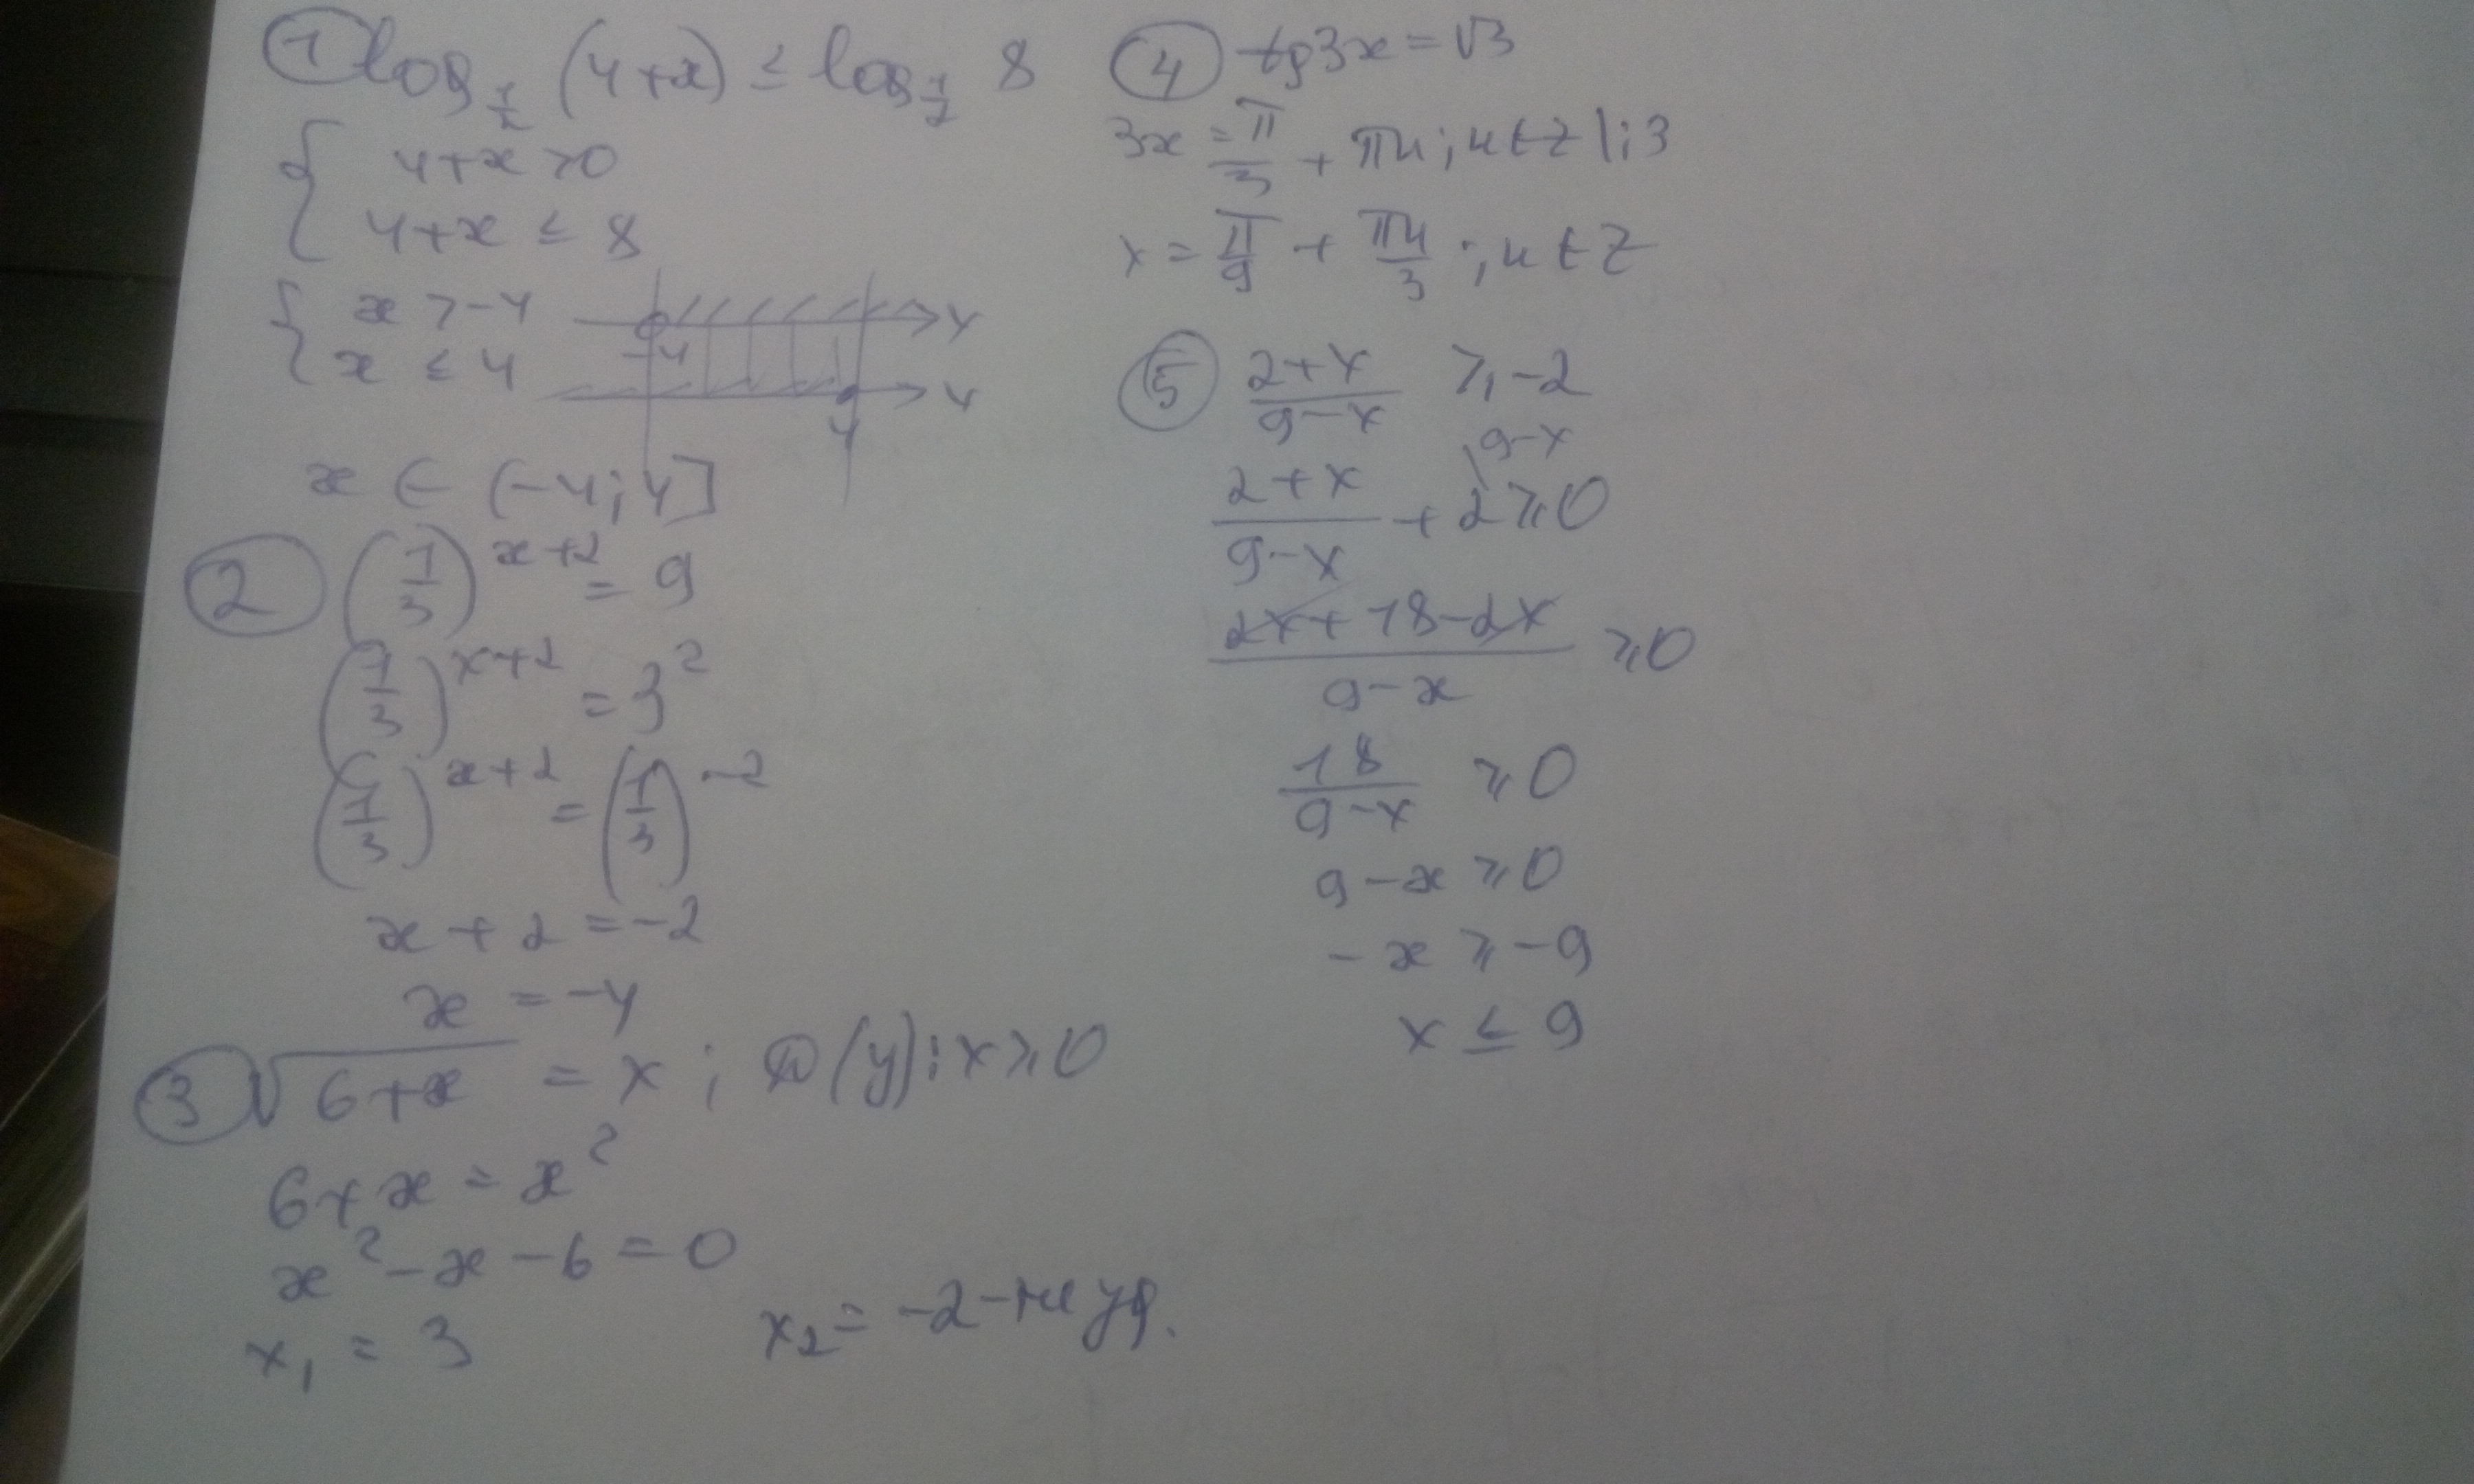 ① log_{1/2} (4+x) ≤ log_{1/2} 8
{ 4+x >0
4+x ≤ 8
{ x >-4
x ≤ 4
-4 x
4 x
x ∈ (-4;4]
② (1/3)^{x+2} = 9
(1/3)^{x+2} = 3^2
(1/3)^{x+2} = (1/3)^{-2}
x+2 =-2
x =-4
③ √(6+x) = x ; D(y): x ≥ 0
6+x = x^2
x^2 -x -6 =0
x_1 = 3 x_2 = -2 - не уд.
④ tg3x = √3
3x = π/3 + πn; n∈Z |:3
x = π/9 + πn/3 ; n∈Z
⑤ (2+x)/(9-x) ≥ -2
(2+x)/(9-x) + 2\^{9-x} ≥ 0
(2x+18-2x)/(9-x) ≥ 0
18/(9-x) ≥ 0
9-x ≥ 0
-x ≥ -9
x ≤ 9